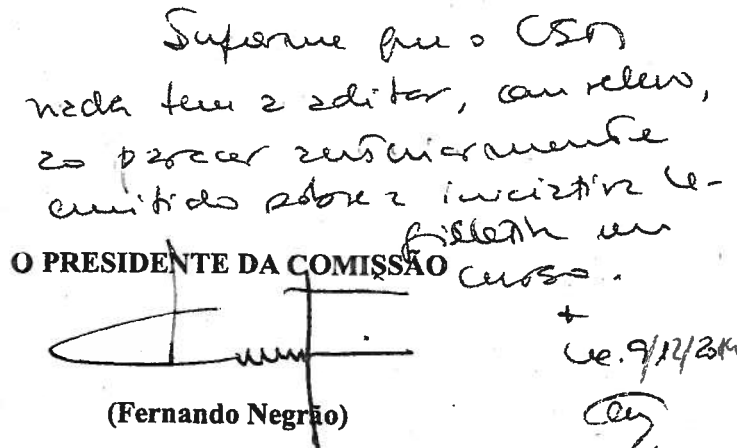 Informe que o CSM
nada tem a aditar, com relevo,
ao parecer anteriormente
emitido sobre a iniciativa le-
gislativa em
curso.
O PRESIDENTE DA COMISSÃO
9/12/2014
(Fernando Negrão)